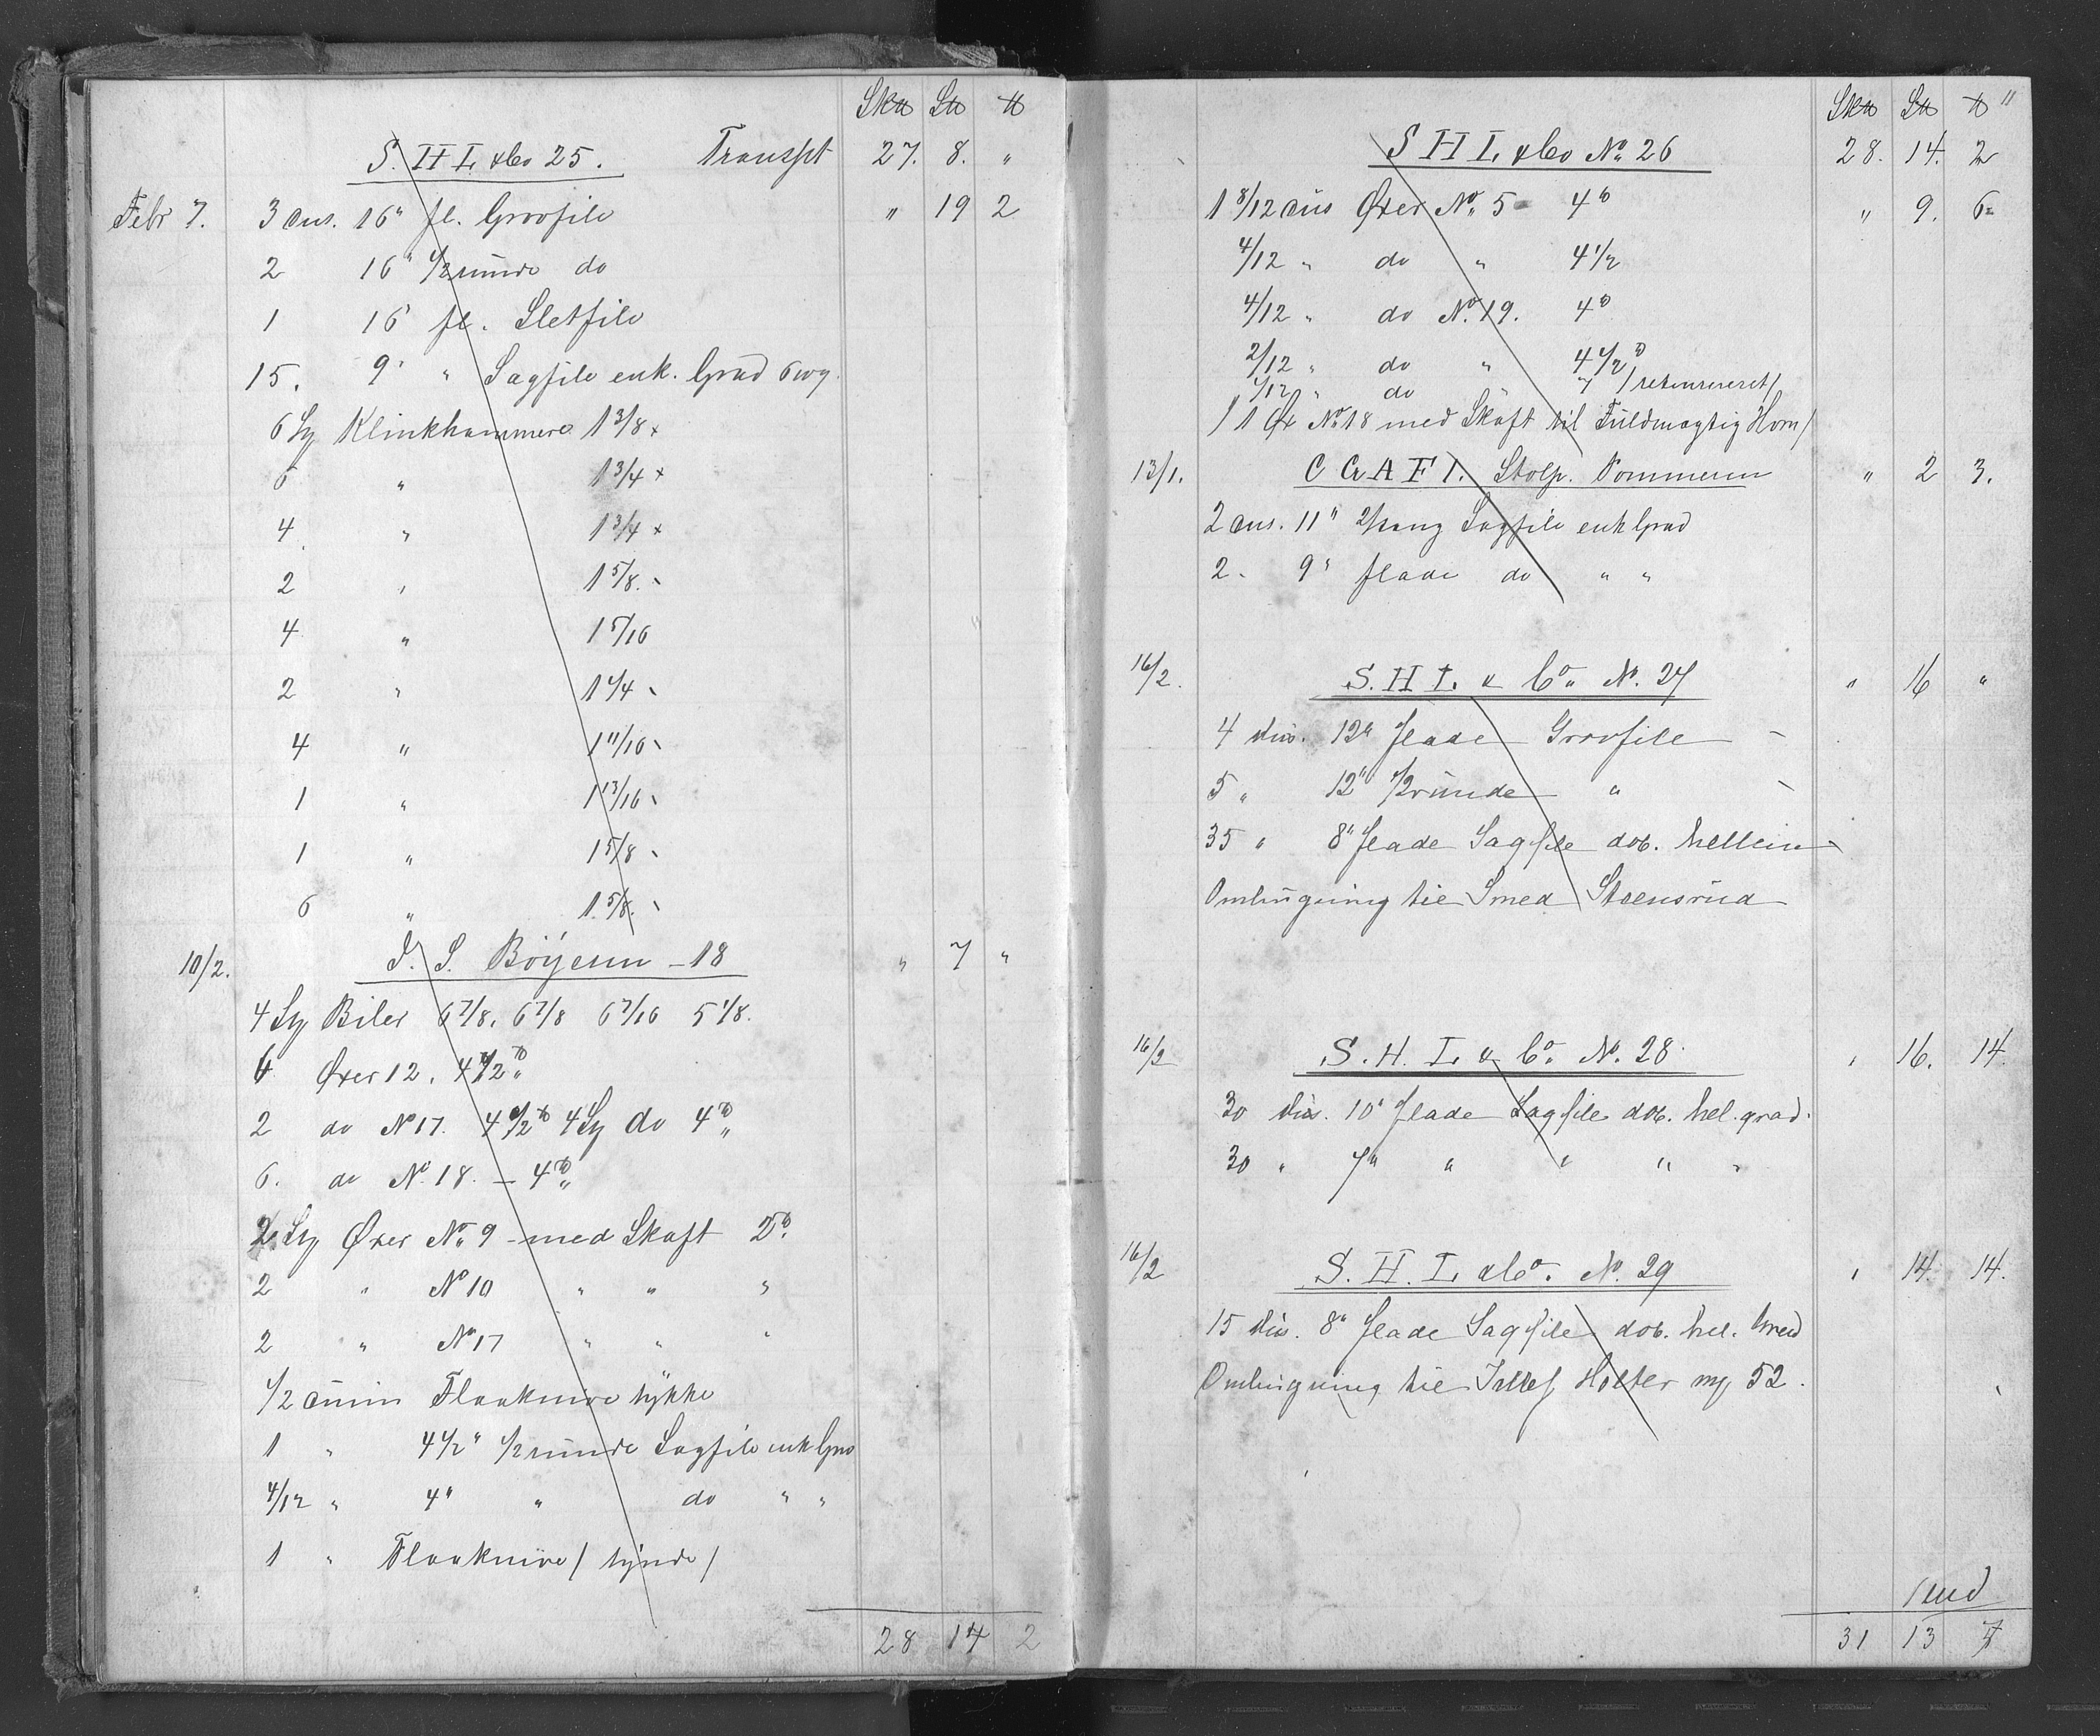 Sk℔ L℔ ℔
S. H I. & Co 25. Transpt 27. 8. "
Febr 7. 3 dus. 16" fl. Grovfile " 19 2
2 16" 1/2 runde do
1 16" fl. Sletfile
15. 9" " Sagfile enk. Grad
6 St Klinkhammere 1 3/8 x
6 " 1 3/4 x
4 " 1 3/4 x
2 " 1 5/8. "
4 " 1 5/16
2 " 1 1/4 "
4 " 1 11/16 "
1 " 1 13/16 "
1 " 1 5/8 "
6 " 1 5/8. "
10/2. J. S. Böyesen - 18 " 7 "
4 St Biler 6 7/8. 6 7/8 6 7/16 5 1/8.
6 Øxer 12. 4 1/2 ℔
2 do No 17. 4 1/2 ℔ 4 St do 4 ℔
6. do No. 18. - 4 ℔
2 St Øxer No. 9 - med Skaft 2 ℔.
2 " No 10 " " "
2 " No 17 " " "
1/2 dusin Flaaknive tykke
1 " 4 1/2" 1/2 runde Sagfile enk Grad
4/12 " 4" " do " "
1 " Flaaknive / tynde /
28 14 2
Sk℔ L℔ ℔ "
S H I. & Co No. 26 28. 14. 2
1 8/12 dus Øxer No. 5 4 ℔ " 9. 6
4/12 " do " 4 1/2
4/12 " do No. 19. 4 ℔
2/12 " do " 4 1/2 ℔
1/12 " do " / returneret /
/ 1 Øx No 18 med Skaft til Fuldmægtig Horn /
13/1. C G A F I. Stolp. Pommern " 2 3.
2 dus. 11" Sagfile enk Grad
2 " 9" flade do " "
16/2. S. H I. & Co. No. 27 " 16 "
4 dus. 12" flade Grovfile -
5 " 12" 1/2 runde " -
35 " 8" flade Sagfile dob.
Ombugning til Smed Steensrud
16/2 S. H. I. & Co. No. 28. " 16. 14.
30 dus. 10" flade Sagfile dob. hel. grad.
30 " 7" " " " "
16/2 S. H. I. & Co. No. 29 " 14. 14.
15 dus. 8" flade Sagfile dob. hel. Grad
Ombugning til Holter 52.
31 13 7